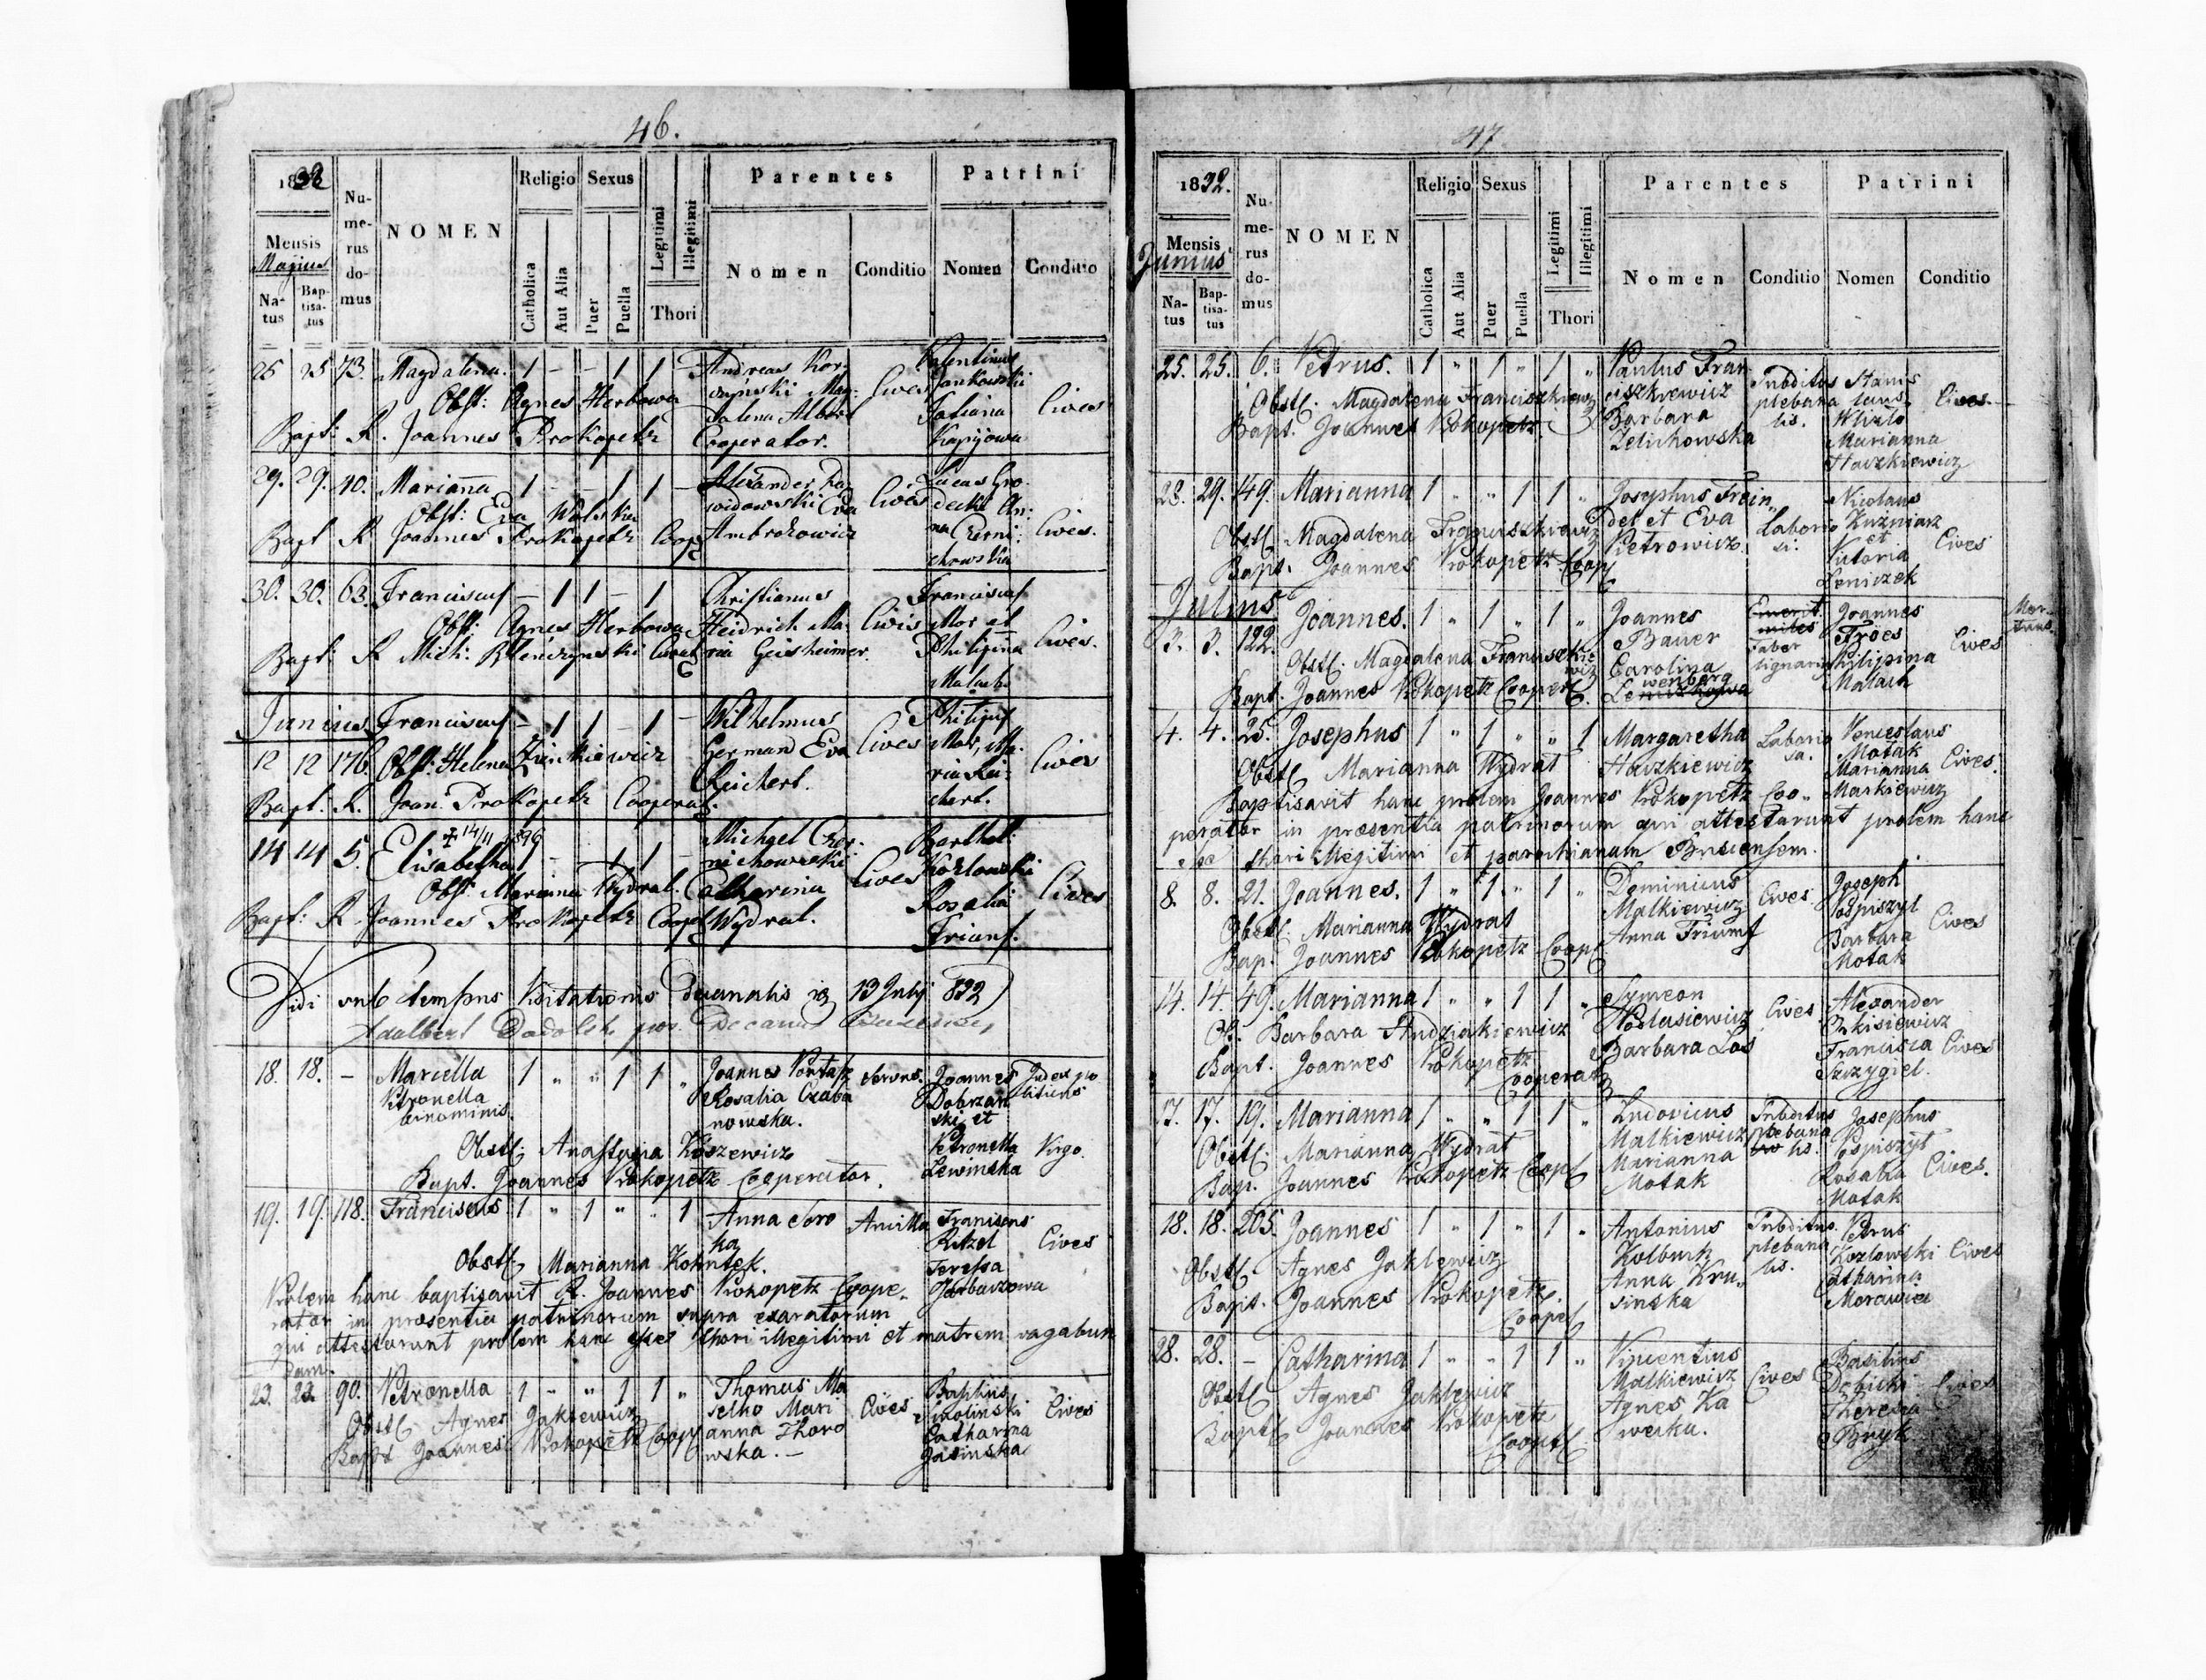 46.
1832
Mensis
Majus
Na-
tus
Bap-
tisa-
tus
Nu-
me-
rus
do-
mus
NOMEN
Religio
Catholica
Aut Alia
Sexus
Puer
Puella
Legitimi
Illegitimi
Thori
Parentes
Nomen
Conditio
Patrini
Nomen
Conditio
25 25 73. Magdalena. 1 – – 1 1 –
Obst: Agnes Herbowa
Bapt: R. Joannes Prokopetz Cooperator.
Andreas Kor-
czyński Mag-
dalena Albert
Cives
Valentinus
Jankowski
Tatiana
Kopijowa
Cives
29. 29. 40. Marianna 1 – – 1 1 –
Obst: Eva Wolska
Bapt R Joannes Prokopetz Coop
Alexander Da
widowski Eva
Ambrozowicz
Cives
Lucas Gro-
decki An-
na Czerni-
chowska
Cives.
30. 30. 63. Franciscus – 1 1 – 1
Obst: Agnes Herbowa
Bapt: R Mich:
Christianus
Heidrich Ma-
ria Geisheimer
Civis
Franciscus
Mor et
Philippina
Malach
Cives.
Junius
12 12 176. Franciscus – 1 1 – 1 –
Obst: Helena
Bapt. R. Joan. Prokopetz Cooperat.
Wilhelmus
German Eva
Reichert.
Cives
Philipus
Mor, Ma-
ria Rei-
chert.
Cives
14 14 5. Elisabetha 1 – – 1 1 –
+ 14/11 896
Obst: Marianna Wydrat.
Bapt: R. Joannes Prokopetz Coop
Michael Czer-
nichowski
Catharina
Wydrat.
Cives
Barthol:
Kozlowski
Rosalia
Triumf.
Cives
Vidi sub tempus Visitationis Decanalis 13 July 832
Adalbert
18. 18. – Marcella 1 „ „ 1 1 „
Petronella
binominis.
Obst: Anastasia Koszewicz
Bapt. Joannes Prokopetz Cooperator.
Joannes
Rosalia Czaba
nowska.
Joannes
Dobrzań
ski et
Petronella
Lewinska
Virgo.
19. 19. 118. Franciscus 1 „ 1 „ „ 1
Obst: Marianna
Anna Soro
ka
Ancilla
Franciscus
Ritzel
Teressa
Garbarzowa
Cives
Prolem hanc baptisavit R. Joannes Prokopetz Coope-
rator in praesentia patrinorum supra exaratorum
qui attestarunt prolem hanc esse thori illegitimi et matrem vagabun
dam.
23. 23. 90. Petronella 1 „ „ 1 1 „
Obst: Agnes Jaklewicz
Bapt Joannes Prokopetz Coop
Thomas Ma
Mari
anna Thoro
wska. –
Cives
Baptius
Smolinski
Catharina
Jasinska
Cives
47
1832.
Mensis
Junius
Na-
tus
Bap-
tisa-
tus
Nu-
me-
rus
do-
mus
NOMEN
Religio
Catholica
Aut Alia
Sexus
Puer
Puella
Legitimi
Illegitimi
Thori
Parentes
Nomen
Conditio
Patrini
Nomen
Conditio
25. 25. 6. Petrus. 1 „ 1 „ 1 „
Obst: Magdalena Franciszkiewicz
Bapt. Joannes Prokopetz
Paulus Fran-
ciszkiewicz
Barbara
Zelichowska
Subditus
plebana
lis.
Stanis
laus
Klizlo
Marianna
Haczkiewicz
Cives.
28. 29. 149. Marianna 1 „ „ 1 1 „
Obst: Magdalena Franciszkiewicz
Bapt. Joannes Prokopetz Coop
Josephus Frein
del et Eva
Pietrowicz
Laborio
si.
Nicolaus
Kuzniarz
et
Victoria
Leniczek
Cives
Julius
3. 3. 122. Joannes. 1 „ 1 „ 1 „
Obst: Magdalena Franciszkie
wicz
Bapt. Joannes Prokopetz Cooper
Joannes
Bauer
Carolina
wenberg
Emerit
miles
Faber
lignarius
Joannes
Froes
Philipina
Malach
Cives
4. 4. 25. Josephus 1 „ 1 „ „ 1
Obst: Marianna Wydrat
Margaretha
Haczkiewicz
Laborio
sa.
Venceslaus
Motak
Marianna
Markiewicz
Cives.
Baptisavit hanc prolem Joannes Prokopetz Coo-
perator in praesentia patrinorum qui attestarunt prolem hanc
esse thori illegitimi et parochianam Buscensem.
8. 8. 21. Joannes. 1 „ 1 „ 1 „
Obst: Marianna Wydrat
Bap. Joannes Prokopetz Coop
Dominicus
Malkiewicz
Anna Triumf
Cives
Joseph
Pospiszyl
Barbara
Motak
Cives
14. 14 49. Marianna 1 „ „ 1 1 „
Ob. Barbara Andziakiewicz
Bapt. Joannes Prokopetz
Cooperat
Symeon
Podlasiewicz
Barbara Los
Cives
Alexander
Francisca
Szczygiel.
Cives
17. 17. 19. Marianna 1 „ „ 1 1 „
Obst: Marianna Wydrat
Bap. Joannes Prokopetz Coop
Ludovicus
Malkiewicz
Marianna
Motak
Subditus
plebana
lis.
Josephus
Pospiszyl
Rosalia
Motak
Cives.
18. 18. 205. Joannes 1 „ 1 „ 1 „
Obst: Agnes Jaklewicz
Bapt. Joannes Prokopetz
Coop
Antonius
Kolbuch
Anna Kru-
sinska
Subditus
plebana
lis.
Petrus
Kozlowski
Catharina
Morawiec
Cives
28. 28. – Catharina 1 „ „ 1 1 „
Obst: Agnes Jaklewicz
Bapt: Joannes Prokopetz
Coop
Vincentius
Malkiewicz
Agnes Ka
werka.
Cives
Basilius
Debicki
Theresia
Bryk
Cives